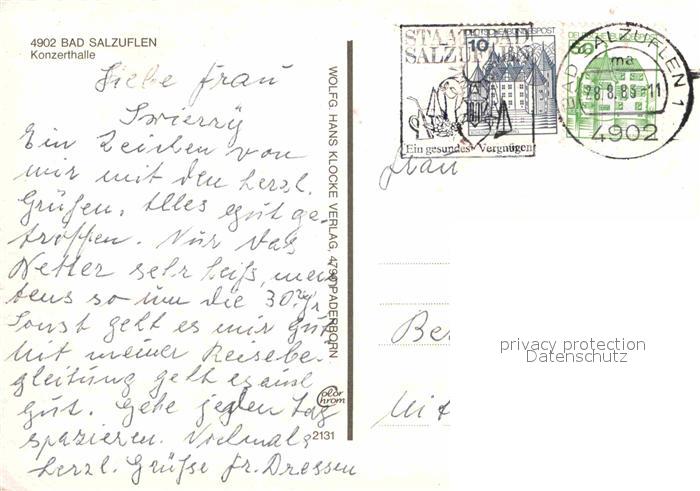 4902 BAD SALZUFLEN
Konzerthalle
Liebe Frau
Ein Zeichen von
mir mit den herzl.
Grüßen. Alles gut ge-
troffen. Nur das
Wetter sehr heiß, meis
tens so um die 30 gr.
Sonst geht es mir gut
Mit meiner Reisebe-
gleitung geht es auch
gut. Gehe jeden Tag
spazieren. Vielmals
herzl. Grüße Fr. Dressen
WOLFG. HANS KLOCKE VERLAG, 4790 PADERBORN
Color
chrom
2131
STAATSBAD
SALZUFLEN
Ein gesundes Vergnügen
10
DEUTSCHE BUNDESPOST
BAD SALZUFLEN 1
ma
-11
4902
Frau
Be
Mit
privacy protection
Datenschutz